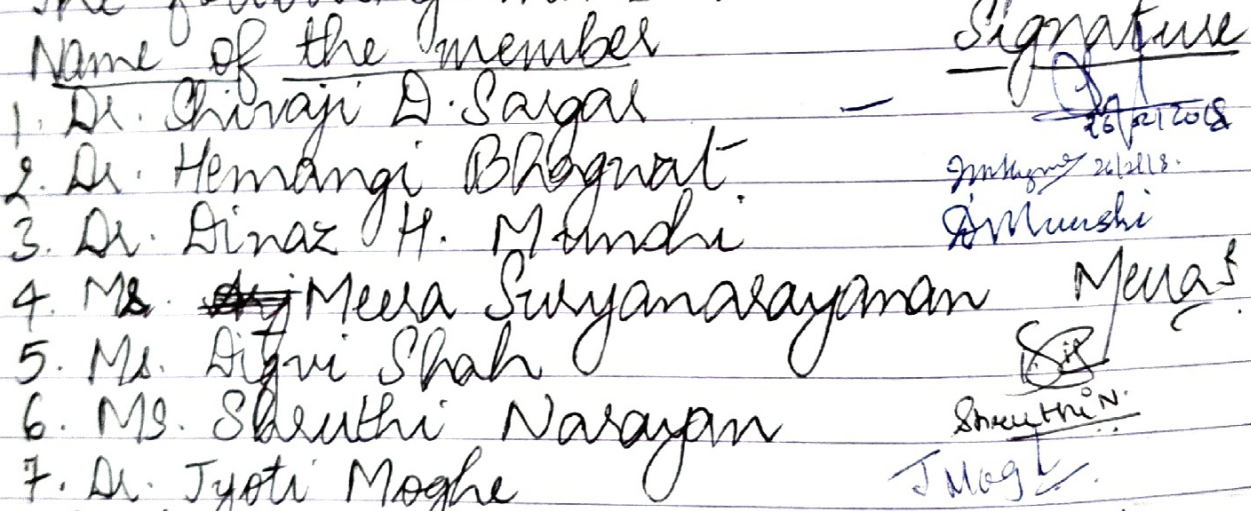 The following
Name of the member Signature
1. Dr. Shivaji D. Sargar - 26/2/2018
2. Dr. Hemangi Bhagwat 26/2/18.
3. Dr. Dinaz H. Munshi DMunshi
4. Ms. Meera Suryanarayanan Meera S
5. Ms. Digvi Shah
6. Ms. Shruthi Narayan Shruthi N.
7. Dr. Jyoti Moghe J Mog